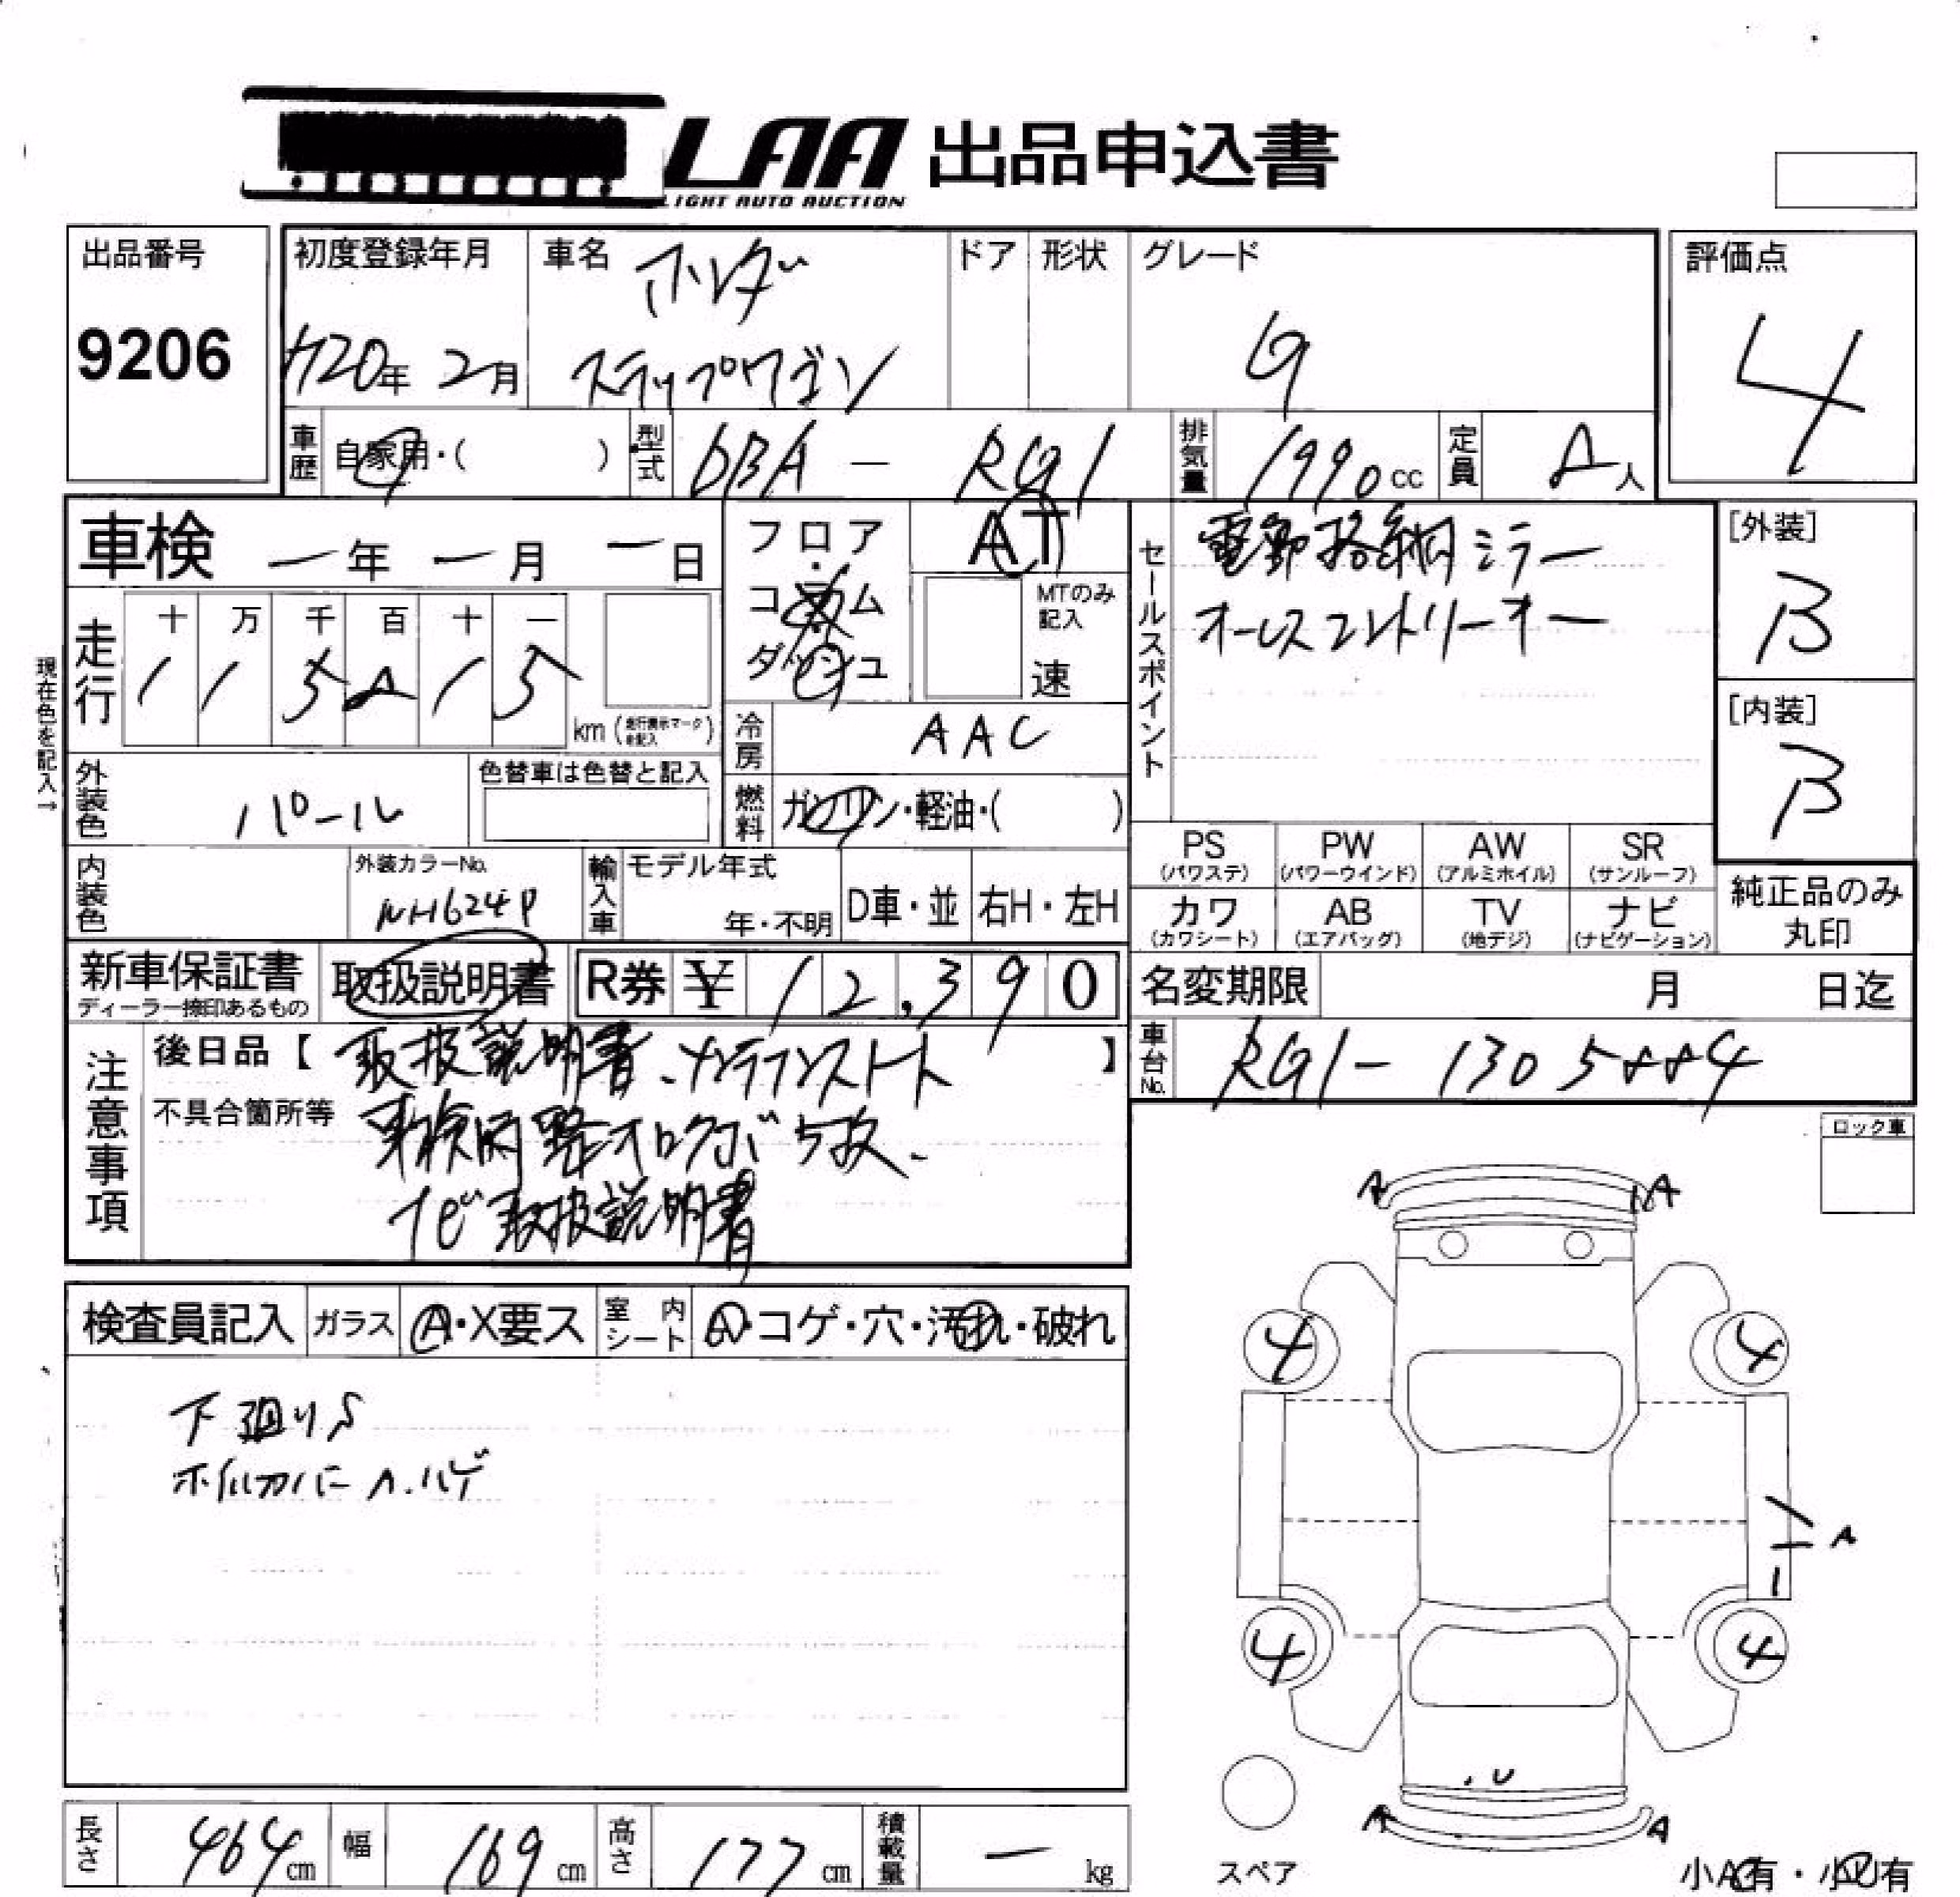 LAA 出品申込書
LIGHT AUTO AUCTION
出品番号
9206
初度登録年月
H20年 2月
車名 ホンダ
ステップワゴン
ドア
形状
グレード
G
評価点
4
車歴 自家用・( )
型式 DBA - RG1
排気量 1990cc
定員 8人
車検 一年 一月 一日
走行
十 万 千 百 十 一
1 1 5 8 1 5
km (走行表示マーク を記入)
現在色を記入→
フロア
コラム
ダッシュ
AT
MTのみ記入
速
冷房 AAC
燃料 ガソリン・軽油・( )
外装色 パール
色替車は色替と記入
内装色
外装カラーNo.
NH624P
輸入車
モデル年式
年・不明
D車・並
右H・左H
セールスポイント
電動格納ミラー
[外装]
B
[内装]
B
PS (パワステ)
PW (パワーウインド)
AW (アルミホイル)
SR (サンルーフ)
カワ (カワシート)
AB (エアバッグ)
TV (地デジ)
ナビ (ナビゲーション)
純正品のみ丸印
新車保証書
ディーラー捺印あるもの
取扱説明書
R券 ¥ 12,390
名変期限 月 日迄
車台No. RG1-130
注意事項
後日品【 取扱説明書、 】
不具合箇所等
取扱説明書
ロック車
検査員記入
ガラス A・X要ス
室内シート A・コゲ・穴・汚れ・破れ
下廻りS
ホイルカバー A.ハゲ
A
A
4
4
A
4
4
U
A
A
スペア
小A有・小U有
長さ 464cm
幅 169cm
高さ 177cm
積載量 一 kg